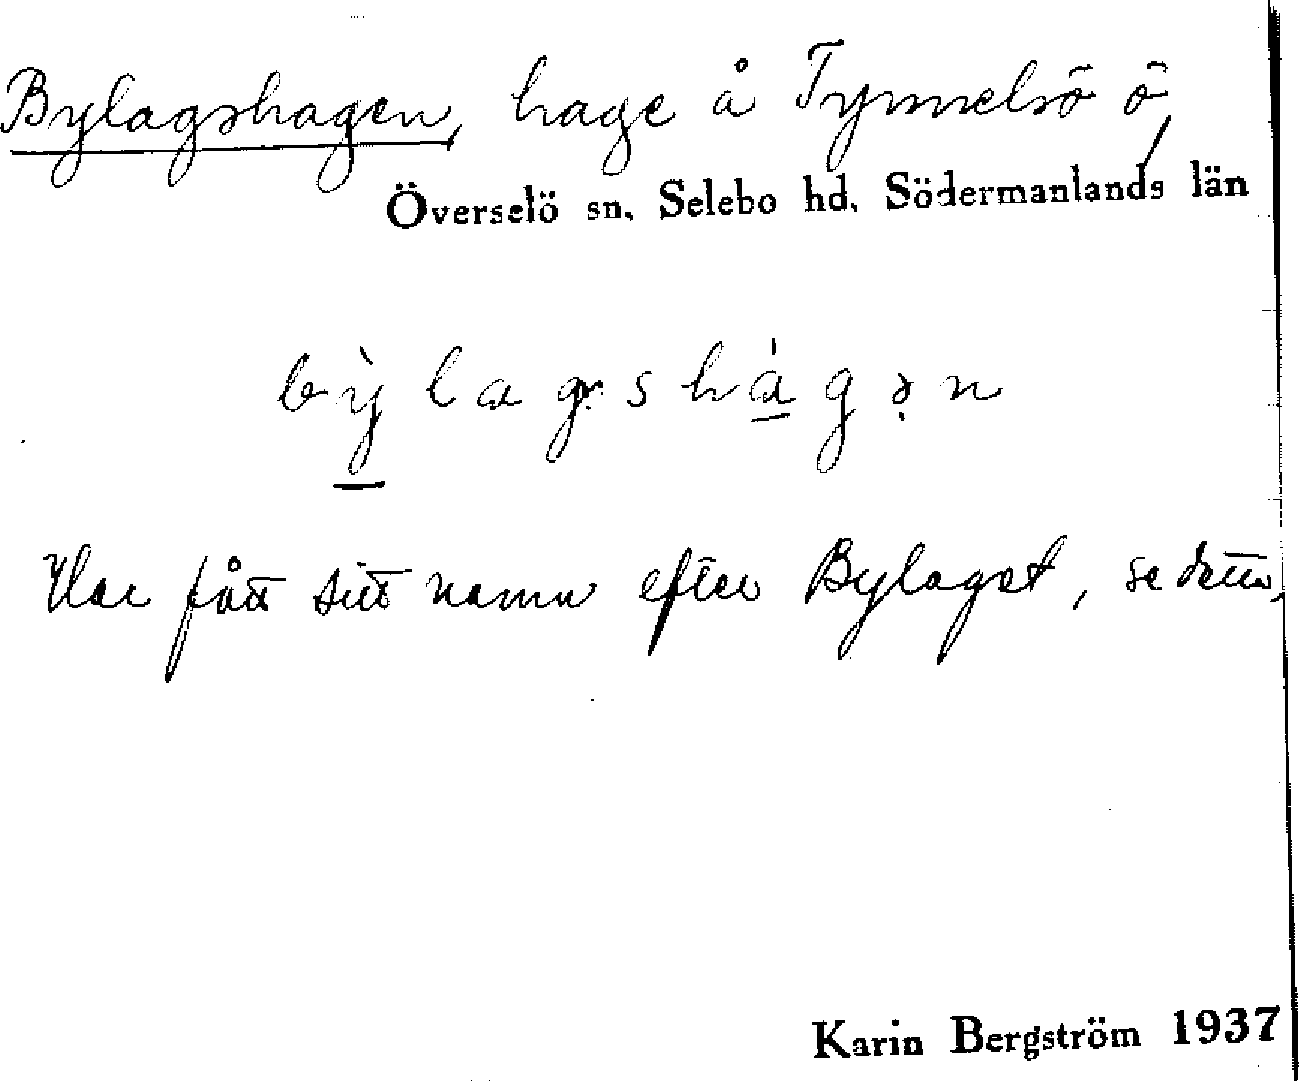 Bylagshagen, hage å Tynnelsö ö,
Överselö sn. Selebo hd. Södermanlands län
bỳlagshágən
Har fått sitt namn efter Bylaget, se detta.
Karin Bergström 1937